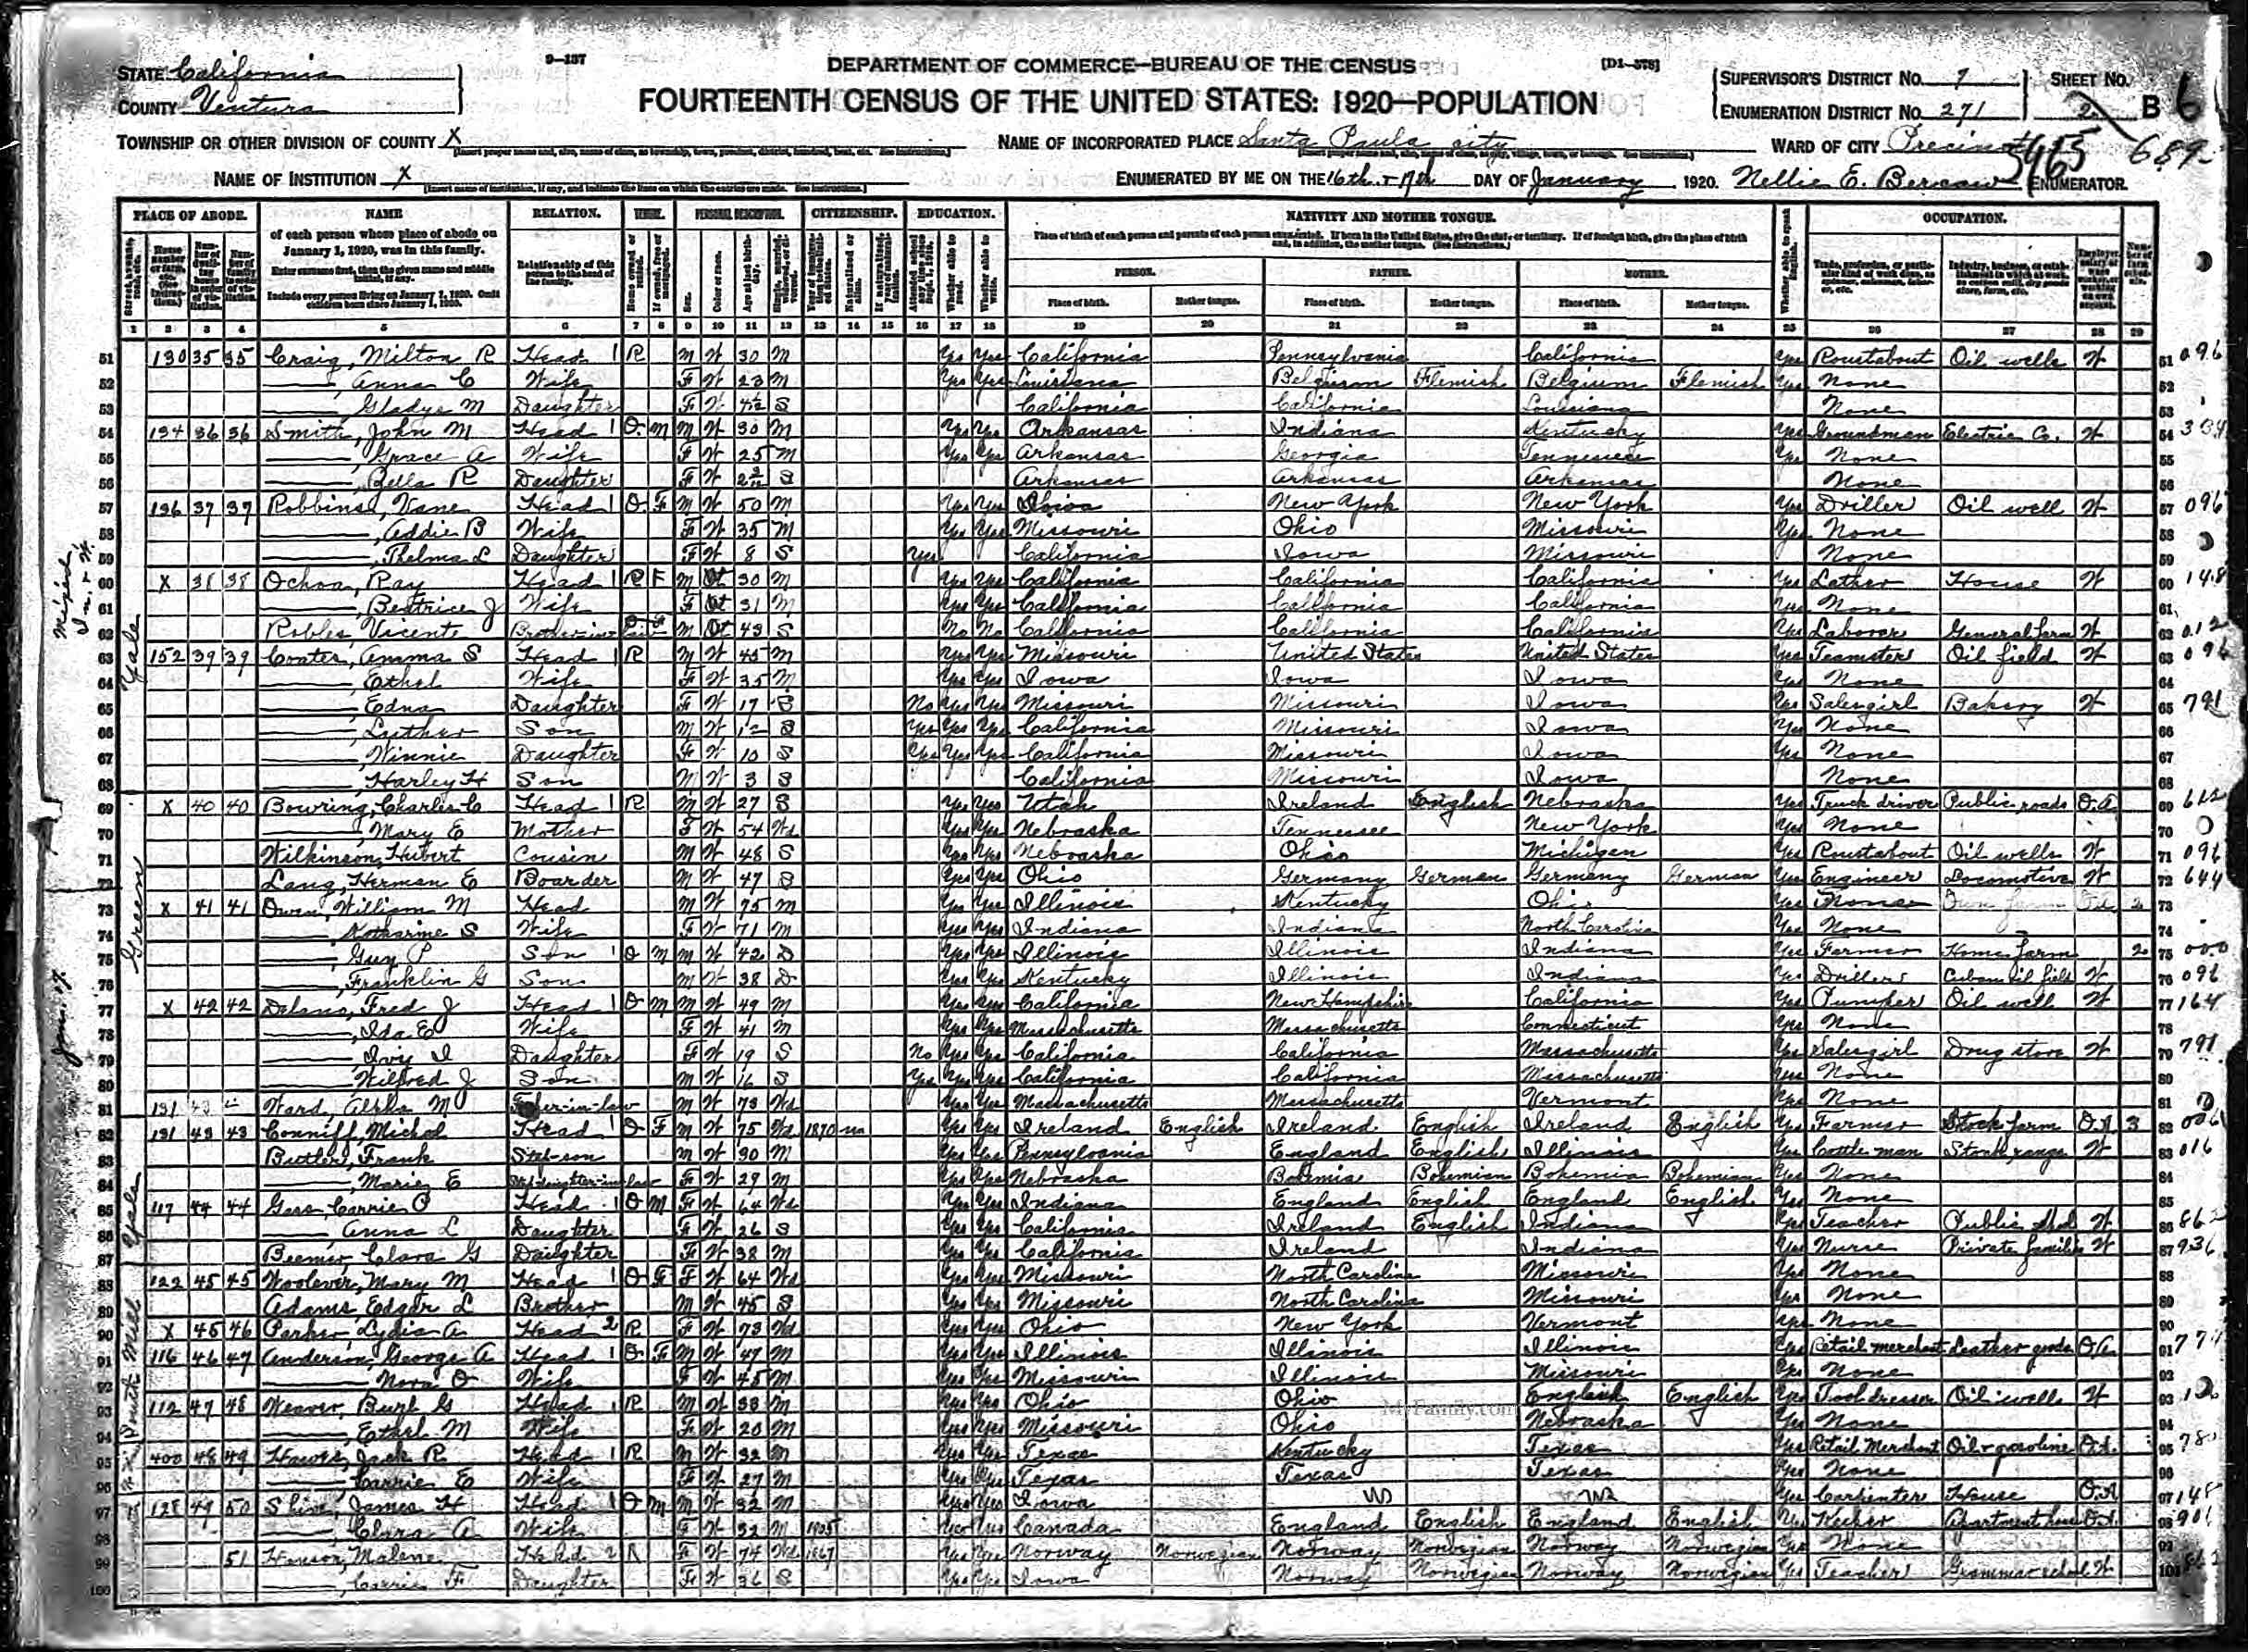 9-137
DEPARTMENT OF COMMERCE—BUREAU OF THE CENSUS
[D1-378]
STATE California
COUNTY Ventura
FOURTEENTH CENSUS OF THE UNITED STATES: 1920—POPULATION
SUPERVISOR'S DISTRICT No. 7 SHEET No.
ENUMERATION DISTRICT No. 271 2 B 6
TOWNSHIP OR OTHER DIVISION OF COUNTY X
NAME OF INCORPORATED PLACE Santa Paula city
WARD OF CITY Precinct
NAME OF INSTITUTION X
ENUMERATED BY ME ON THE 16th + 17th DAY OF January, 1920. Nellie E. Bercaw ENUMERATOR.
PLACE OF ABODE. NAME RELATION. TENURE. PERSONAL DESCRIPTION. CITIZENSHIP. EDUCATION. NATIVITY AND MOTHER TONGUE. OCCUPATION.
of each person whose place of abode on January 1, 1920, was in this family.
Enter surname first, then the given name and middle initial, if any.
Include every person living on January 1, 1920. Omit children born since January 1, 1920.
Relationship of this person to the head of the family.
PERSON. FATHER. MOTHER.
Place of birth. Mother tongue. Place of birth. Mother tongue. Place of birth. Mother tongue.
1 2 3 4 5 6 7 8 9 10 11 12 13 14 15 16 17 18 19 20 21 22 23 24 25 26 27 28 29
51 130 35 35 Craig, Milton R Head 1 R M W 30 M Yes Yes California Pennsylvania California Yes Roustabout Oil wells W 51 096
52 Anna C Wife F W 23 M Yes Yes Louisiana Belgium Flemish Belgium Flemish Yes None 52
53 Gladys M Daughter F W S California California Louisiana None 53
54 134 36 36 Smith, John M Head 1 O M M W 30 M Yes Yes Arkansas Indiana Kentucky Yes Groundman Electric Co. W 54
55 Grace A Wife F W 25 M Yes Yes Arkansas Georgia Tennessee Yes None 55
56 Bella R Daughter F W S Arkansas Arkansas Arkansas None 56
57 136 37 37 Robbins, Vane Head 1 O F M W 50 M Yes Yes Iowa New York New York Yes Driller Oil well W 57 096
58 Addie B Wife F W 35 M Yes Yes Missouri Ohio Missouri Yes None 58
59 Thelma L Daughter F W 8 S Yes California Iowa Missouri None 59
60 X 38 38 Ochoa, Ray Head 1 R F M Ot 30 M Yes Yes California California California Yes Lather House W 60 148
61 Beatrice J Wife F Ot 31 M Yes Yes California California California Yes None 61
62 Robles, Vicente Brother-in-law M Ot 43 S No No California California California Yes Laborer General farm W 62 012
63 152 39 39 Coates, Amma S Head 1 R M W 45 M Yes Yes Missouri United States United States Yes Teamster Oil field W 63 096
64 Ethel Wife F W 35 M Yes Yes Iowa Iowa Iowa Yes None 64
65 Edna Daughter F W 17 S No Yes Yes Missouri Missouri Iowa Yes Salesgirl Bakery W 65 791
66 Luther Son M W 12 S Yes Yes Yes California Missouri Iowa Yes None 66
67 Winnie Daughter F W 10 S Yes Yes Yes California Missouri Iowa Yes None 67
68 Harley H Son M W 3 S California Missouri Iowa None 68
69 X 40 40 Bowring, Charles C Head 1 R M W 27 S Yes Yes Utah Ireland English Nebraska Yes Truck driver Public roads O.A. 69
70 Mary E Mother F W 54 Wd Yes Yes Nebraska Tennessee New York Yes None 70
71 Wilkinson, Hubert Cousin M W 48 S Yes Yes Nebraska Ohio Michigan Yes Roustabout Oil wells W 71 096
72 Lang, Herman E Boarder M W 47 S Yes Yes Ohio Germany German Germany German Yes Engineer Locomotive W 72 644
73 X 41 41 Owen, William M Head M W 75 M Yes Yes Illinois Kentucky Ohio Yes 73
74 Katharine S Wife F W 71 M Yes Yes Indiana Indiana North Carolina Yes None 74
75 Guy P Son 1 O M M W 42 D Yes Yes Illinois Illinois Indiana Yes Farmer Home farm 2 75 000
76 Franklin G Son M W 38 D Yes Yes Kentucky Illinois Indiana Yes Driller Cuban oil field W 76 096
77 X 42 42 Delano, Fred J Head 1 O M M W 49 M Yes Yes California New Hampshire California Yes Pumper Oil well W 77 164
78 Ida E Wife F W 41 M Yes Yes Massachusetts Massachusetts Connecticut Yes None 78
79 Ivy I Daughter F W 19 S No Yes Yes California California Massachusetts Yes Salesgirl Drug store W 79 791
80 Wilfred J Son M W 16 S Yes Yes Yes California California Massachusetts Yes None 80
81 131 43 Ward, Alpha M Father-in-law M W 73 Wd Yes Yes Massachusetts Massachusetts Vermont Yes None 81
82 131 43 43 Conniff, Michel Head 1 O F M W 75 Wd 1870 na Yes Yes Ireland English Ireland English Ireland English Yes Farmer Stock farm O.A. 3 82
83 Butler, Frank Step-son M W 30 M Yes Yes Pennsylvania England English Illinois Yes Cattle man Stock range W 83 016
84 Marie E Step-daughter-in-law F W 29 M Yes Yes Nebraska Bohemia Bohemian Bohemia Bohemian Yes None 84
85 117 44 44 Gess, Carrie P Head 1 O M F W 64 Wd Yes Yes Indiana England English England English Yes None 85
86 Anna L Daughter F W 26 S Yes Yes California Ireland English Indiana Yes Teacher Public Shol W 86
87 Beemer, Clara G Daughter F W 38 M Yes Yes California Ireland Indiana Yes Nurse Private families W 87 936
88 122 45 45 Woolever, Mary M Head 1 O F F W 64 Wd Yes Yes Missouri North Carolina Missouri Yes None 88
89 Adams, Edgar L Brother M W 45 S Yes Yes Missouri North Carolina Missouri Yes None 89
90 X 45 46 Parker, Lydia A Head 2 R F W 73 Wd Yes Yes Ohio New York Vermont Yes None 90
91 116 46 47 Anderson, George A Head 1 O F M W 47 M Yes Yes Illinois Illinois Illinois Yes Retail merchant Leather goods O.A. 91
92 Nora O Wife F W 45 M Yes Yes Missouri Illinois Missouri Yes None 92
93 112 47 48 Weaver, Burl G Head 1 R M W 38 M Yes Yes Ohio Ohio English English Yes Tool dresser Oil wells W 93
94 Ethel M Wife F W 20 M Yes Yes Missouri Ohio Nebraska Yes None 94
95 400 48 49 Hawes, Jack R Head 1 R M W 32 M Yes Yes Texas Kentucky Texas Yes Retail Merchant Oil + gasoline O.A. 95
96 Carrie E Wife F W 27 M Yes Yes Texas Texas Texas Yes None 96
97 128 49 50 Shive, James H Head 1 O M M W 32 M Yes Yes Iowa US US Yes Carpenter House O.A. 97 148
98 Clara A Wife F W 32 M 1905 Yes Yes Canada England English England English Yes Keeper Apartment house O.A. 98 901
99 51 Hanson, Malene Head 2 R F W 74 Wd 1867 Yes Yes Norway Norwegian Norway Norwegian Norway Norwegian Yes None 99
100 Carrie F Daughter F W 36 S Yes Yes Iowa Norway Norwegian Norway Norwegian Yes Teacher Grammar school W 100
Yale
Green
Yale
South Mill
MyFamily.com